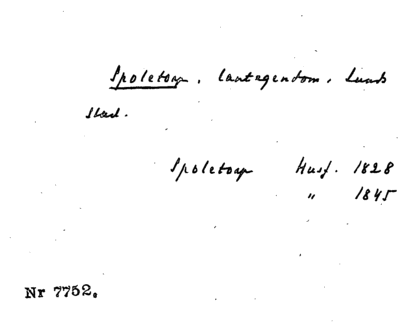 Spoletorp, lantegendom, Lunds
stad.
Spoletorp Husf. 1828
" 1845
Nr 7752.